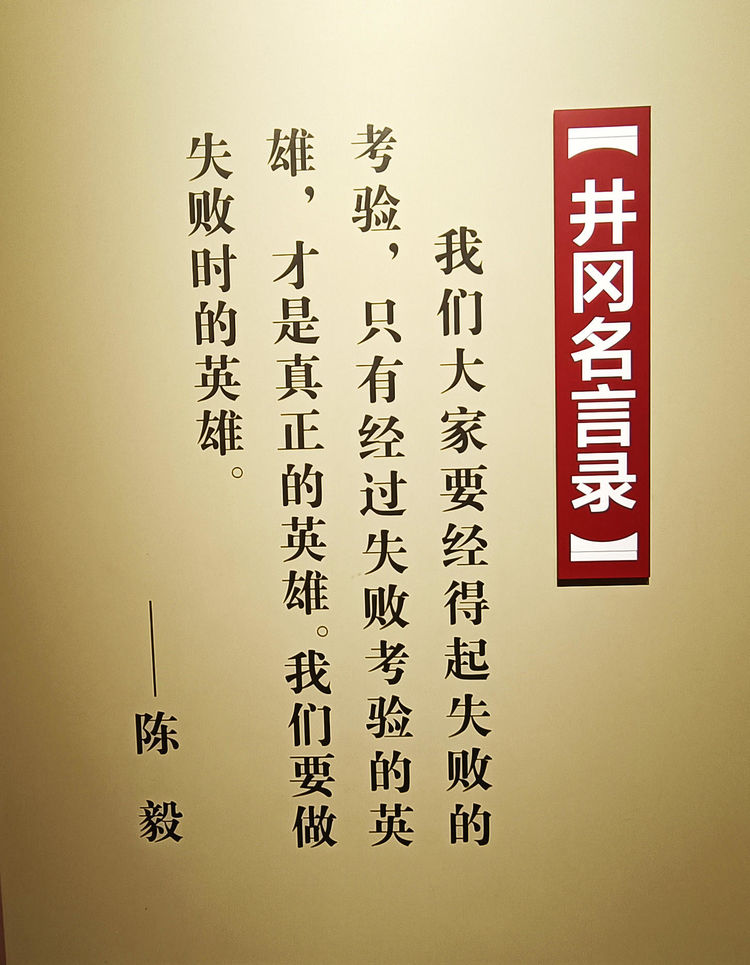 【井冈名言录】
我们大家要经得起失败的
考验，只有经过失败考验的英
雄，才是真正的英雄。我们要做
失败时的英雄。
——陈毅